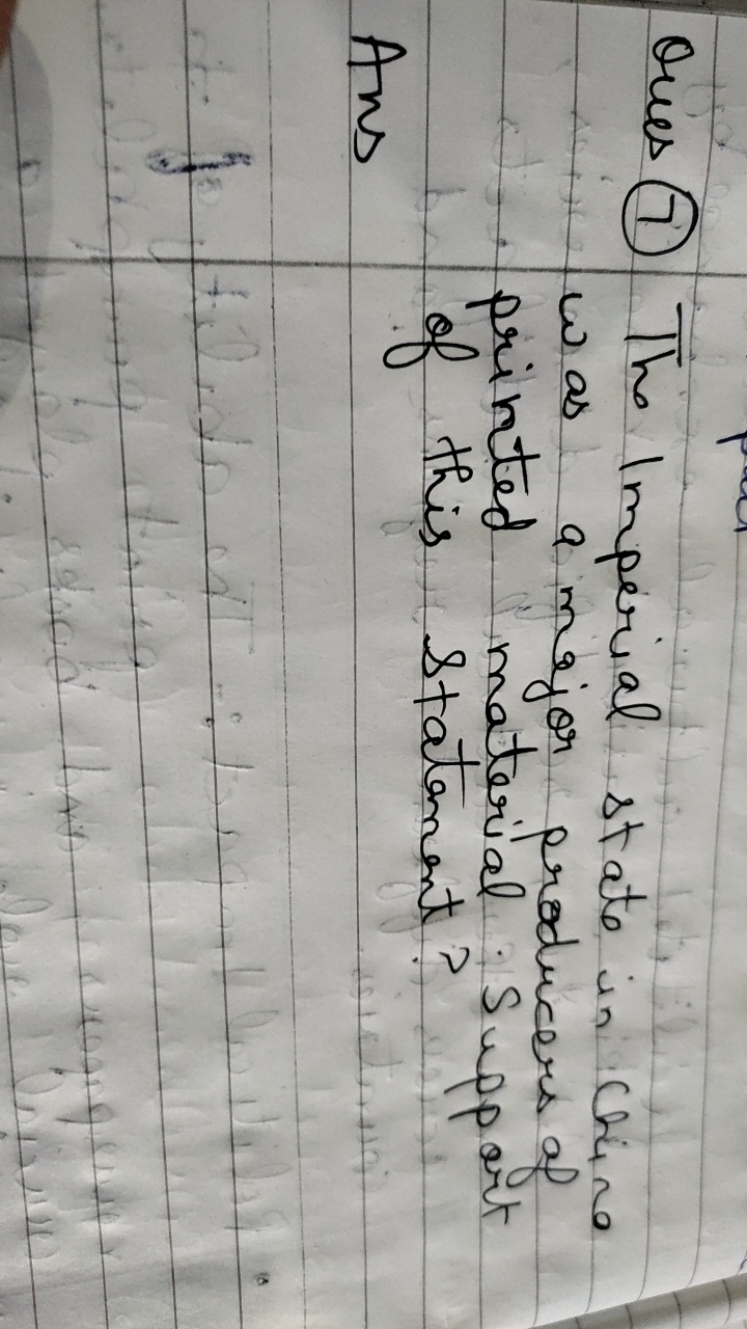 Ques 7 The Imperial state in China
was a major producers of
printed material. Support
of this statement?
Ans